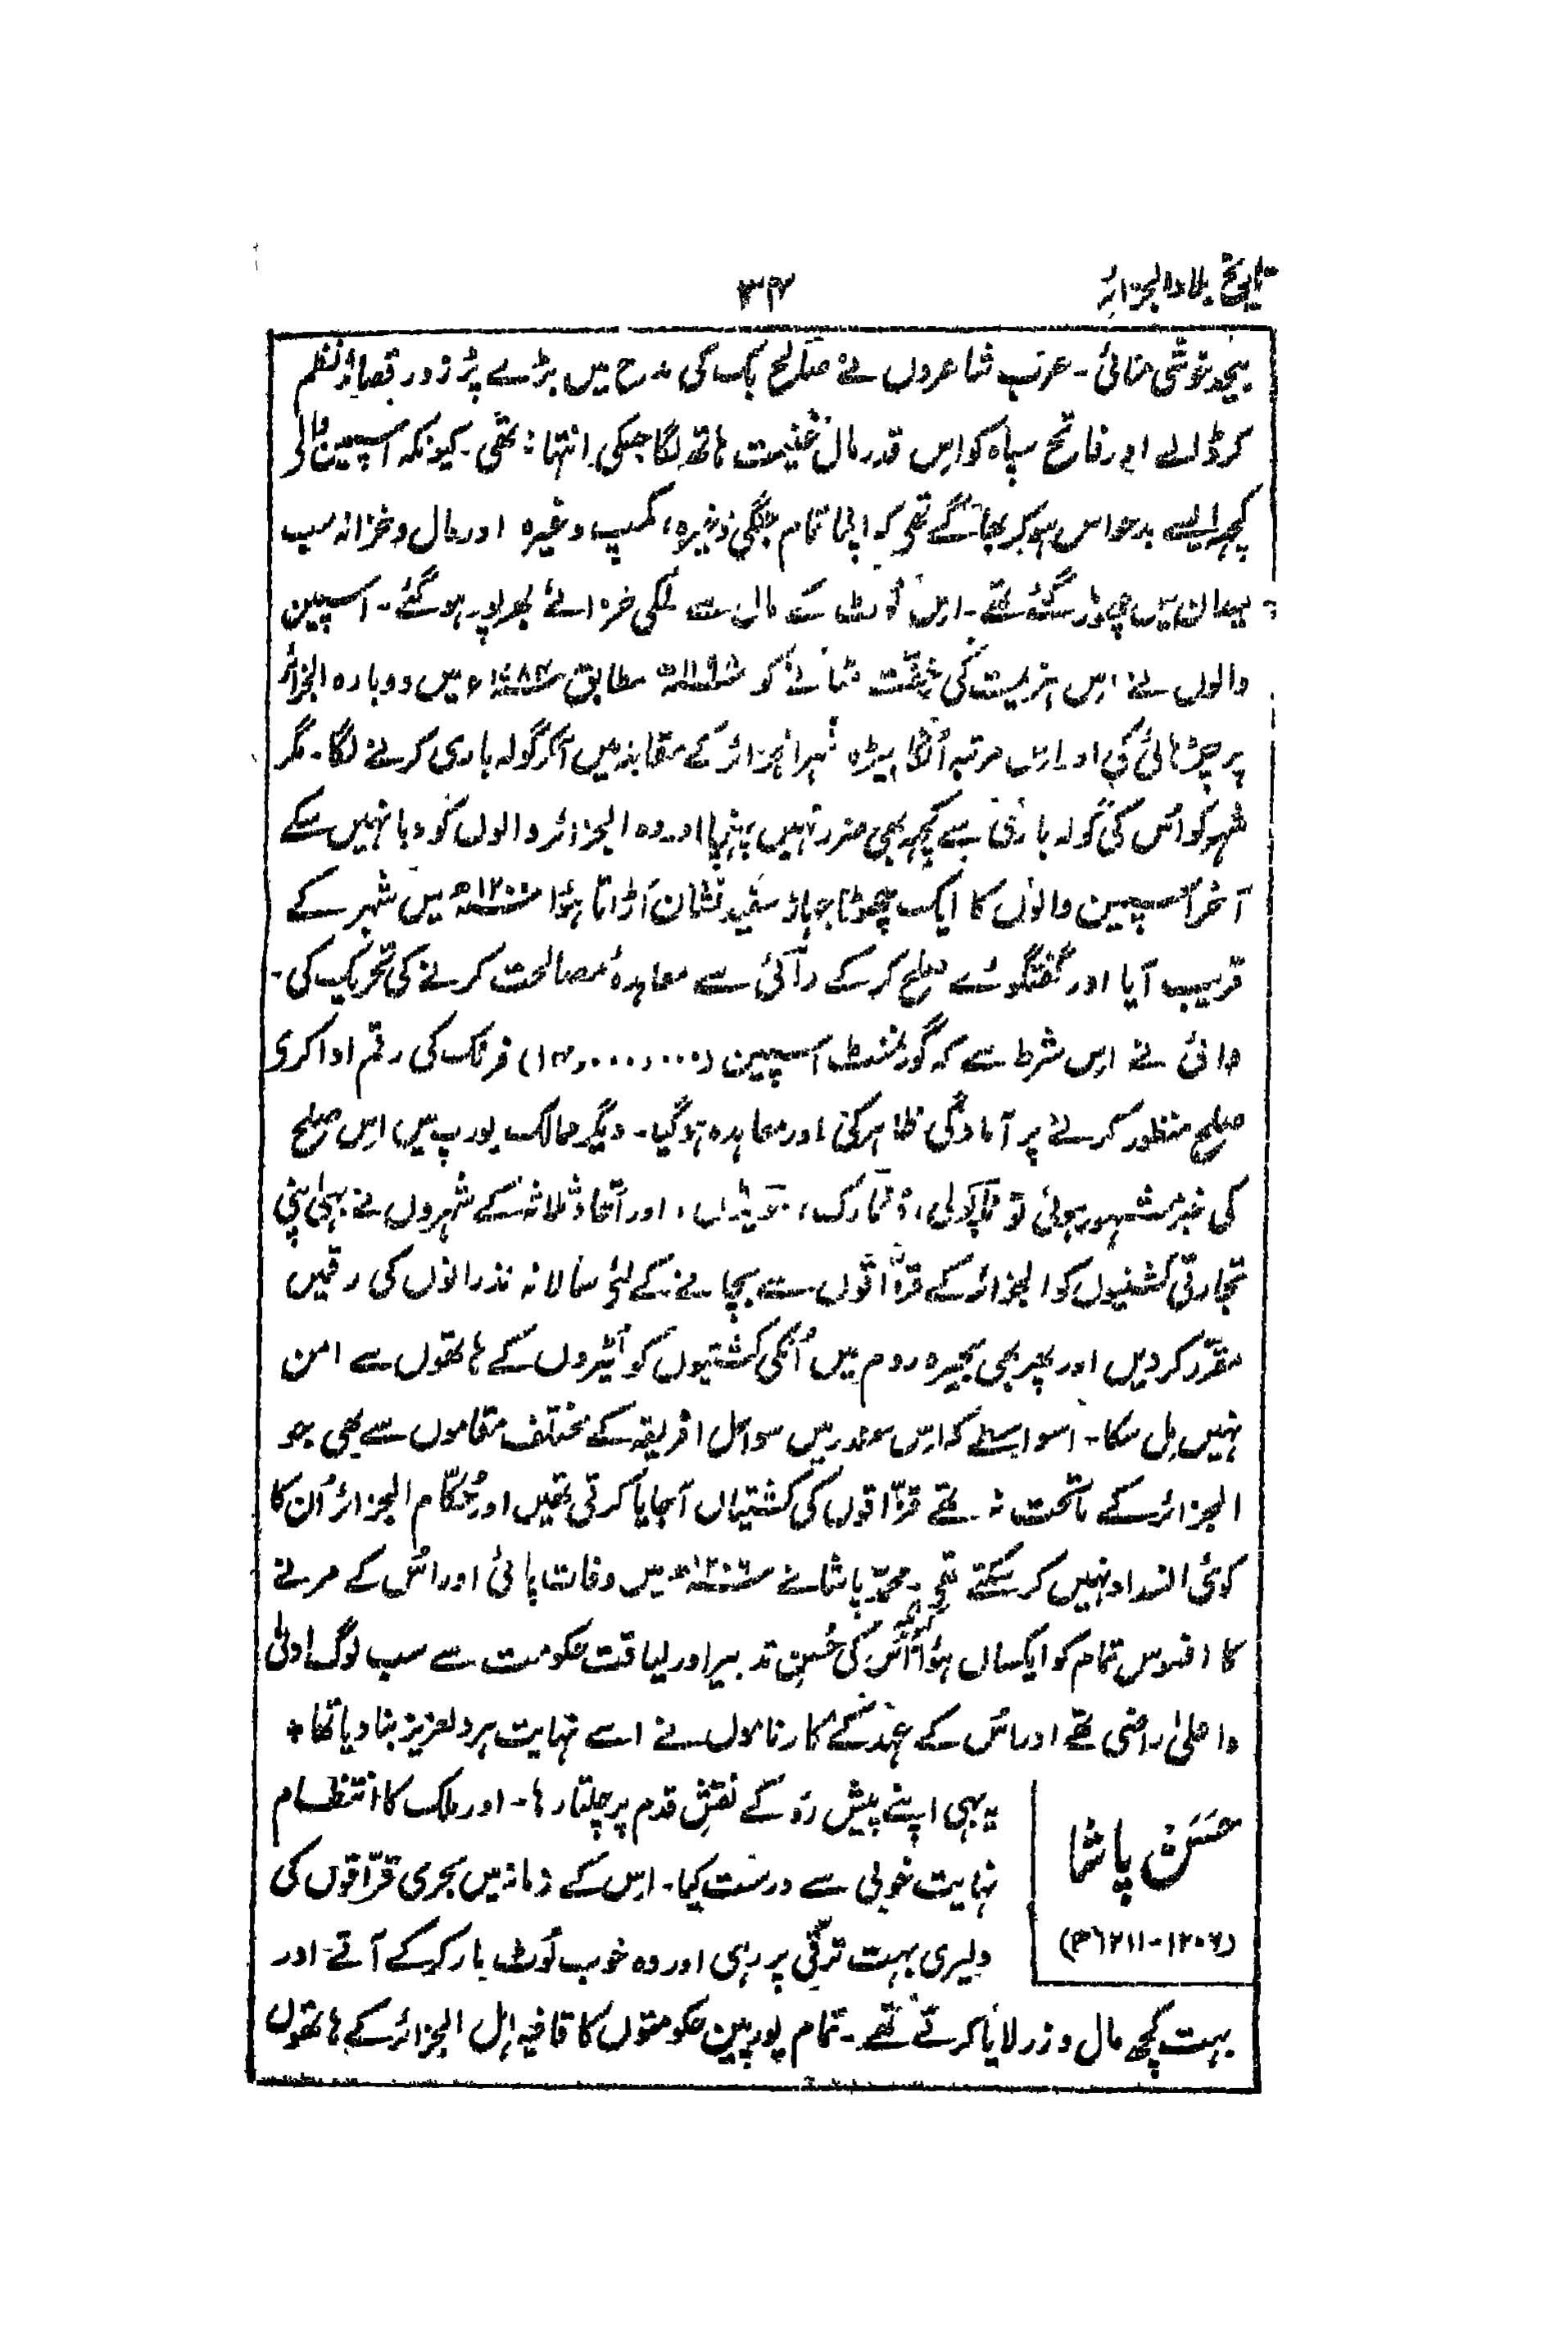 تاریخ بلاد الجزائر
۳۴
بیحد خوشی منائی۔ عرب شاعروں نے صالح بک کی مدح میں بڑے پُر زور قصائد نظم
کر ڈالے اور فاتح سپاہ کو اس قدر مال غنیمت ہاتھ لگا جسکی انتہا نہ تھی۔ کیونکہ اسپین والے
کچھ ایسے بدحواس ہوکر بھاگے تھے کہ اپنا تمام جنگی ذخیرہ، کمپ وغیرہ اور مال و خزانہ سب
میدان میں چھوڑ گئے تھے۔ اس لُوٹ کے مال سے ملکی خزانے بھرپور ہوگئے۔ اسپین
والوں نے اس ہزیمت کی خفّت مٹانے کو ۱۱۹۸ھ مطابق ۱۷۸۴ء میں دوبارہ الجزائر
پر چڑھائی کی اور اس مرتبہ اُنکا بیڑہ شہر الجزائر کے مقابلہ میں آکر گولہ باری کرنے لگا۔ مگر
شہر کو اُس کی گولہ باری سے کچھ بھی ضرر نہیں پہنچا اور وہ الجزائر والوں کو دبا نہیں سکے
آخر اسپین والوں کا ایک چھوٹا جہاز سفید نشان اُڑاتا ہؤا ۱۲۰۰ھ میں شہر کے
قریب آیا اور گفتگوئے صلح کرکے دائی سے معاہدۂ مصالحت کرنے کی تحریک کی۔
دائی نے اس شرط سے کہ گورنمنٹ اسپین (۱۴,۰۰۰,۰۰۰) فرنک کی رقم ادا کری
صلح منظور کرنے پر آمادگی ظاہر کی اور معاہدہ ہوگیا۔ دیگر ممالک یورپ میں اس صلح
کی خبر مشہور ہوئی تو ناپولی، ڈنمارک، سویڈن، اور اتحاد ثلاثہ کے شہروں نے بھی اپنی
تجارتی کشتیوں کو الجزائر کے قزّاقوں سے بچانے کے لئے سالانہ نذرانوں کی رقمیں
مقرّر کردیں اور پھر بھی بحیرہ روم میں اُنکی کشتیوں کو لُٹیروں کے ہاتھوں سے امن
نہیں مِل سکا۔ اسواسطے کہ اس سمندر میں سواحل افریقہ کے مختلف مقاموں سے بھی جو
الجزائر کے ماتحت نہ تھے قزّاقوں کی کشتیاں آجایا کرتی تھیں اور حُکّام الجزائر اُن کا
کوئی انسداد نہیں کرسکتے تھے۔ محمد پاشا نے ۱۲۰۶ھ میں وفات پائی اور اُس کے مرنے
کا افسوس تمام کو ایکساں ہؤا کیونکہ اُس کی حُسنِ تدبیر اور لیاقت حکومت سے سب لوگ ادنیٰ
و اعلیٰ راضی تھے اور اُس کے عہد کے کارناموں نے اسے نہایت ہردلعزیز بنا دیا تھا ٭
حَسَن پاشا
(۱۲۰۶-۱۲۱۱ھ)
یہ بھی اپنے پیش رَو کے نقشِ قدم پر چلتا رہا۔ اور ملک کا انتظام
نہایت خوبی سے درست کیا۔ اس کے زمانہ میں بحری قزّاقوں کی
دلیری بہت ترقّی پر رہی اور وہ خوب لُوٹ مار کرکے آتے اور
بہت کچھ مال و زر لایا کرتے تھے۔ تمام یورپین حکومتوں کا قافیہ اہل الجزائر کے ہاتھوں